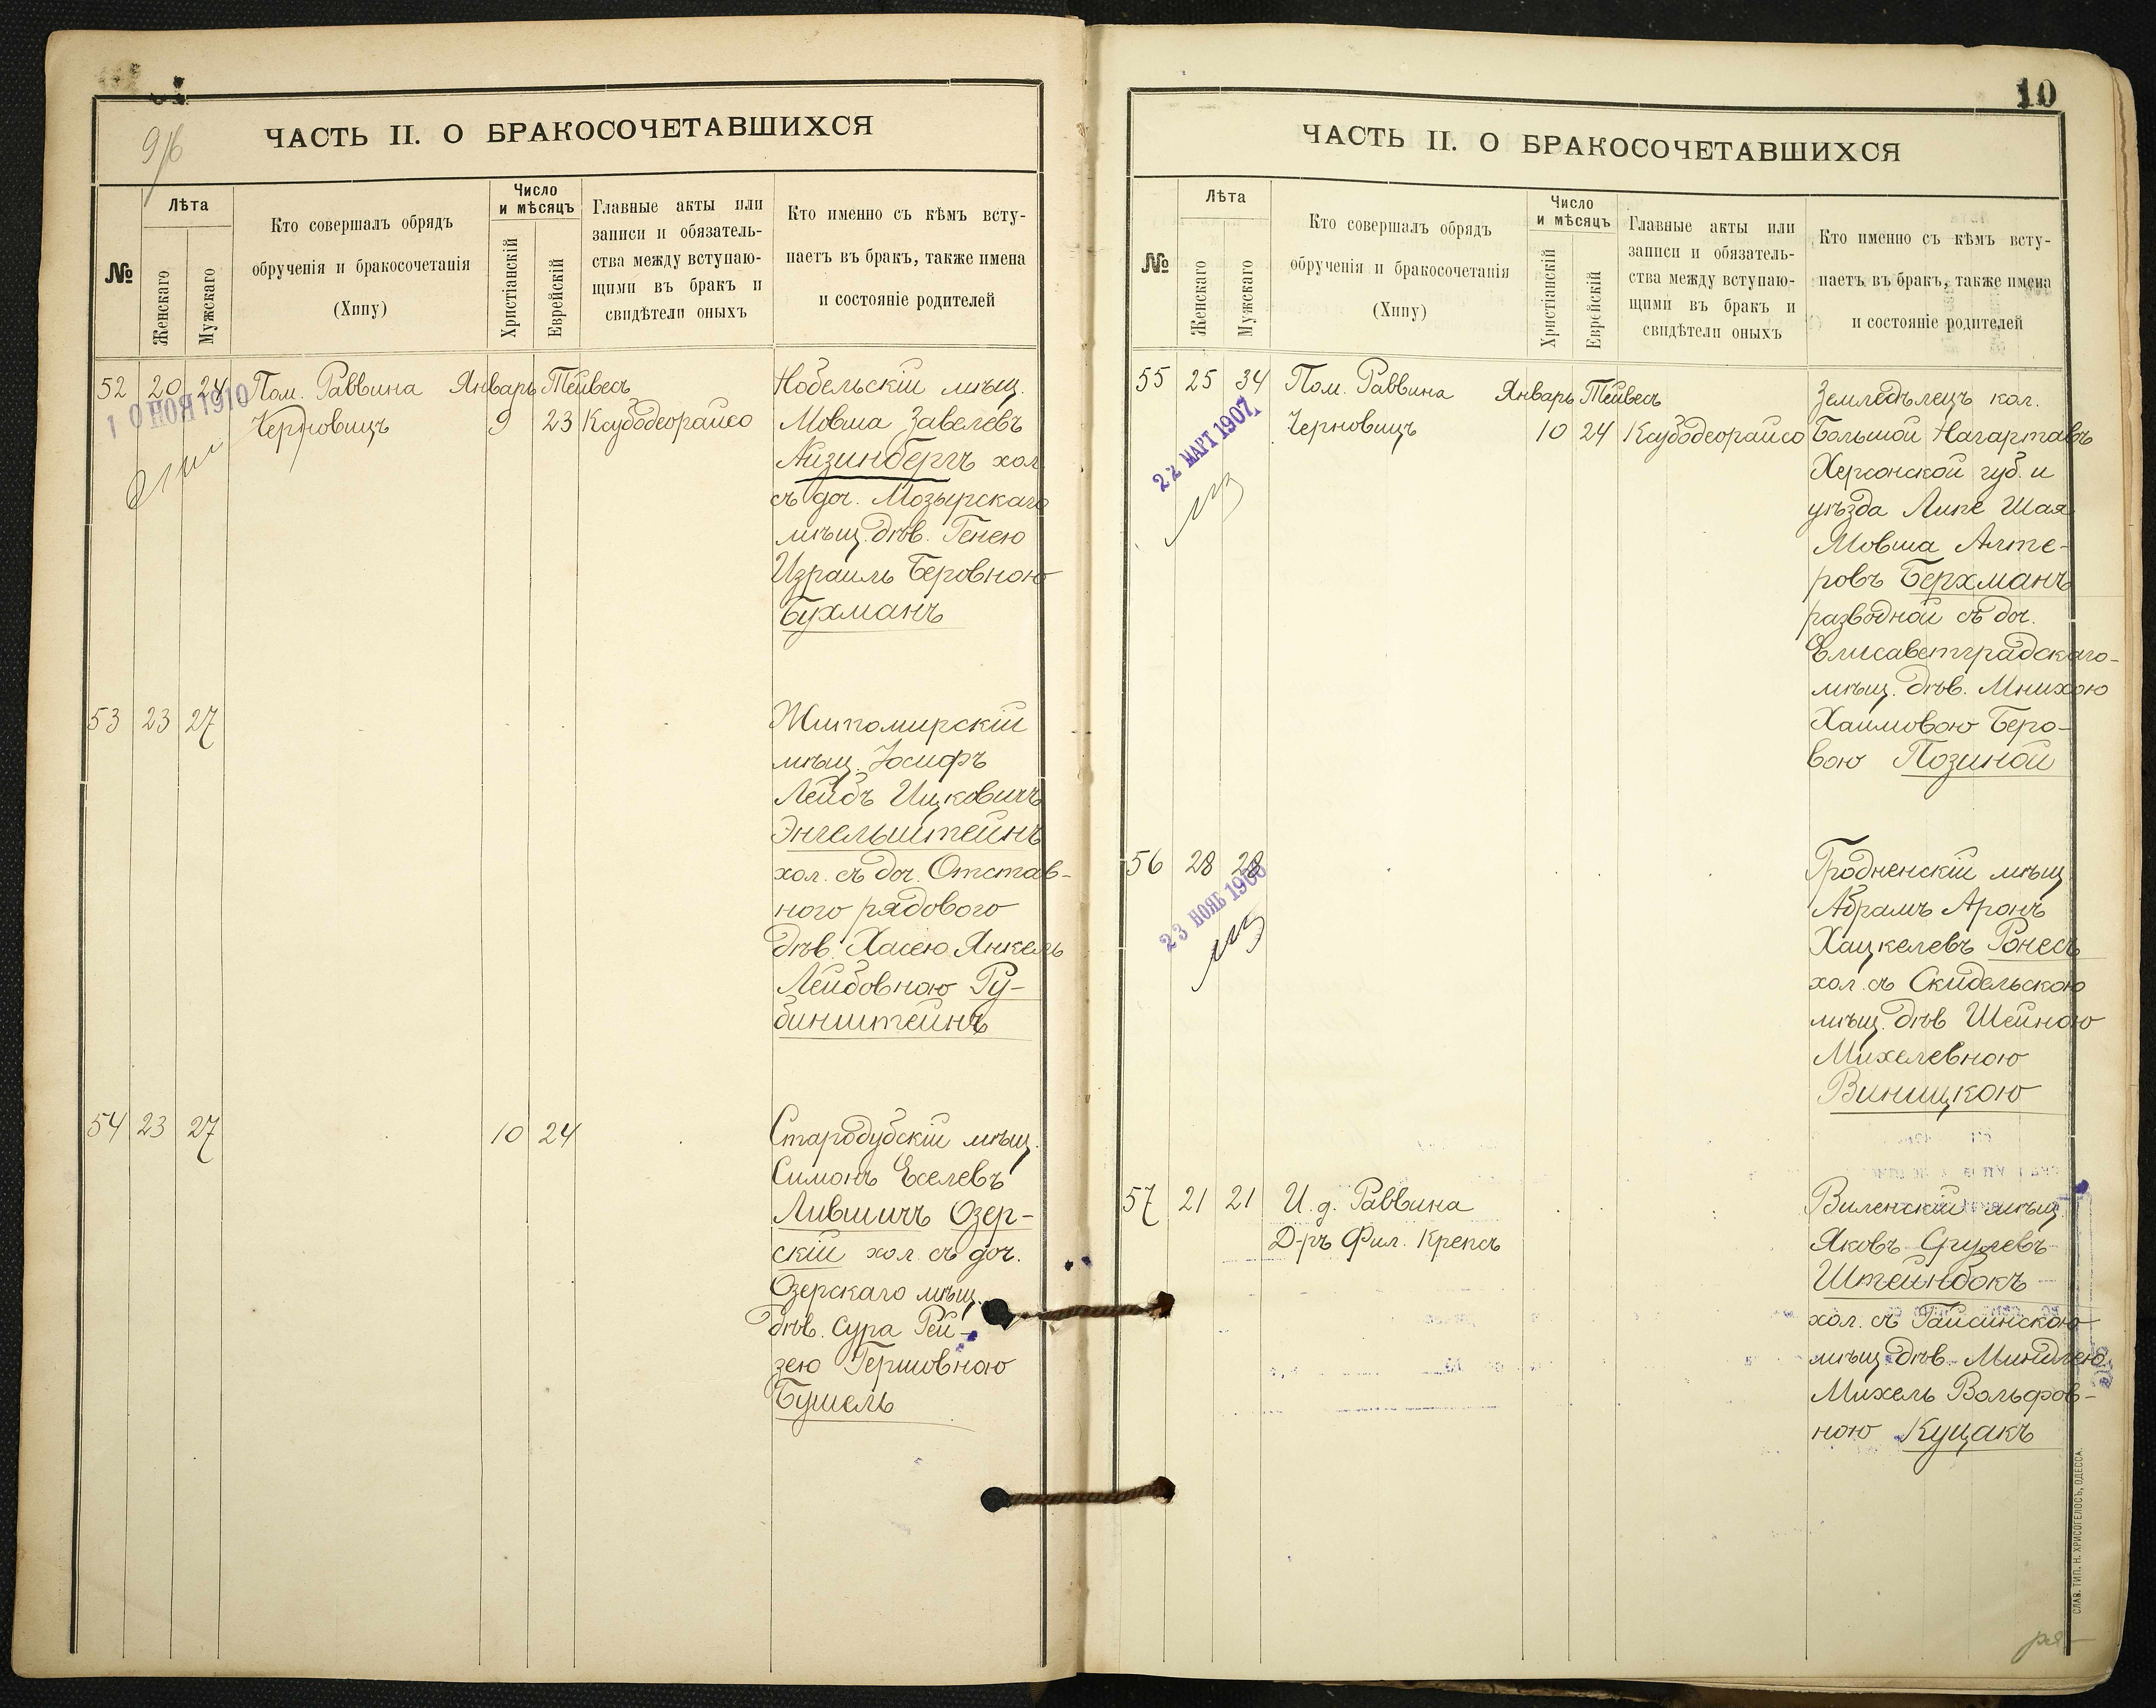 9/6
ЧАСТЬ II. О БРАКОСОЧЕТАВШИХСЯ
№
Лѣта
Женскаго
Мужскаго
Кто совершалъ обрядъ
обрученія и бракосочетанія
(Хипу)
Число
и мѣсяцъ
Христіанскій
Еврейскій
Главные акты или
записи и обязатель-
ства между вступаю-
щими въ бракъ и
свидѣтели оныхъ
Кто именно съ кѣмъ всту-
паетъ въ бракъ, также имена
и состояніе родителей
52 20 24 Пом. Раввина Январь Тейвесъ
Черновицъ 9 23 Ксубодеорайсо
10 НОЯ 1910
Нобельскій мѣщ.
Мовша Завелевъ
Айзинбергъ хол.
съ доч. Мозырскаго
мѣщ. дѣв. Генею
Израиль Беровною
Бухманъ
53 23 27
Житомирскій
мѣщ. Іосифъ
Лейбъ Ицковичъ
Энгельштейнъ
хол. съ доч. Отстав-
ного рядового
дѣв. Хасею Янкель
Лейбовною Ру-
бинштейнъ
54 23 27 10 24
Стародубскій мѣщ.
Симонъ Еселевъ
Лившичъ Озер-
скій хол. съ доч.
Озерскаго мѣщ.
дѣв. Сура Рей-
зею Гершовною
Бушель
10
ЧАСТЬ II. О БРАКОСОЧЕТАВШИХСЯ
№
Лѣта
Женскаго
Мужскаго
Кто совершалъ обрядъ
обрученія и бракосочетанія
(Хипу)
Число
и мѣсяцъ
Христіанскій
Еврейскій
Главные акты или
записи и обязатель-
ства между вступаю-
щими въ бракъ и
свидѣтели оныхъ
Кто именно съ кѣмъ всту-
паетъ въ бракъ, также имена
и состояніе родителей
55 25 34 Пом. Раввина Январь Тейвесъ
Черновицъ 10 24 Ксубодеорайсо
22 МАРТ 1907
Земледѣлецъ кол.
Большой Нагартавъ
Херсонской губ. и
уѣзда Липе Шая
Мовша Алте-
ровъ Берхманъ
разводной съ доч.
Елисаветградскаго
мѣщ. дѣв. Мнихою
Хаимовою Беро-
вою Позиной
56 28 28
23 НОЯБ
Гродненскій мѣщ.
Абрамъ Аронъ
Хацкелевъ Ронесъ
хол. съ Скидельскою
мѣщ. дѣв. Шейною
Михелевною
Виницкою
57 21 21 И. д. Раввина
Д-ръ Фил. Крепсъ
Виленскій мѣщ.
Яковъ Срулевъ
Штейнбокъ
хол. съ Гайсинскою
мѣщ. дѣв. Миндлею
Михель Вольфов-
ною Куцакъ
СЛАВ. ТИП. Н. ХРИСОГЕЛОСЪ, ОДЕССА.